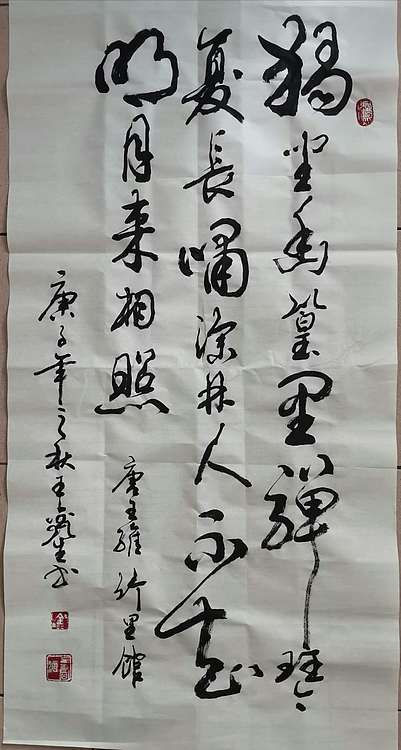 獨坐幽篁里彈琴
复長嘯深林人不知
明月来相照
唐王維竹里館
庚子年之秋王生书